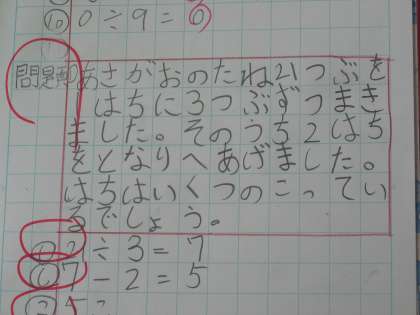 ⑩ 0÷9=0
問題 あさがおのたね21つぶを
はちに3つぶずつまき
ました。そのうち2はち
をとなりへあげました。
はちはいくつのこってい
るでしょう。
÷3=7
7-2=5